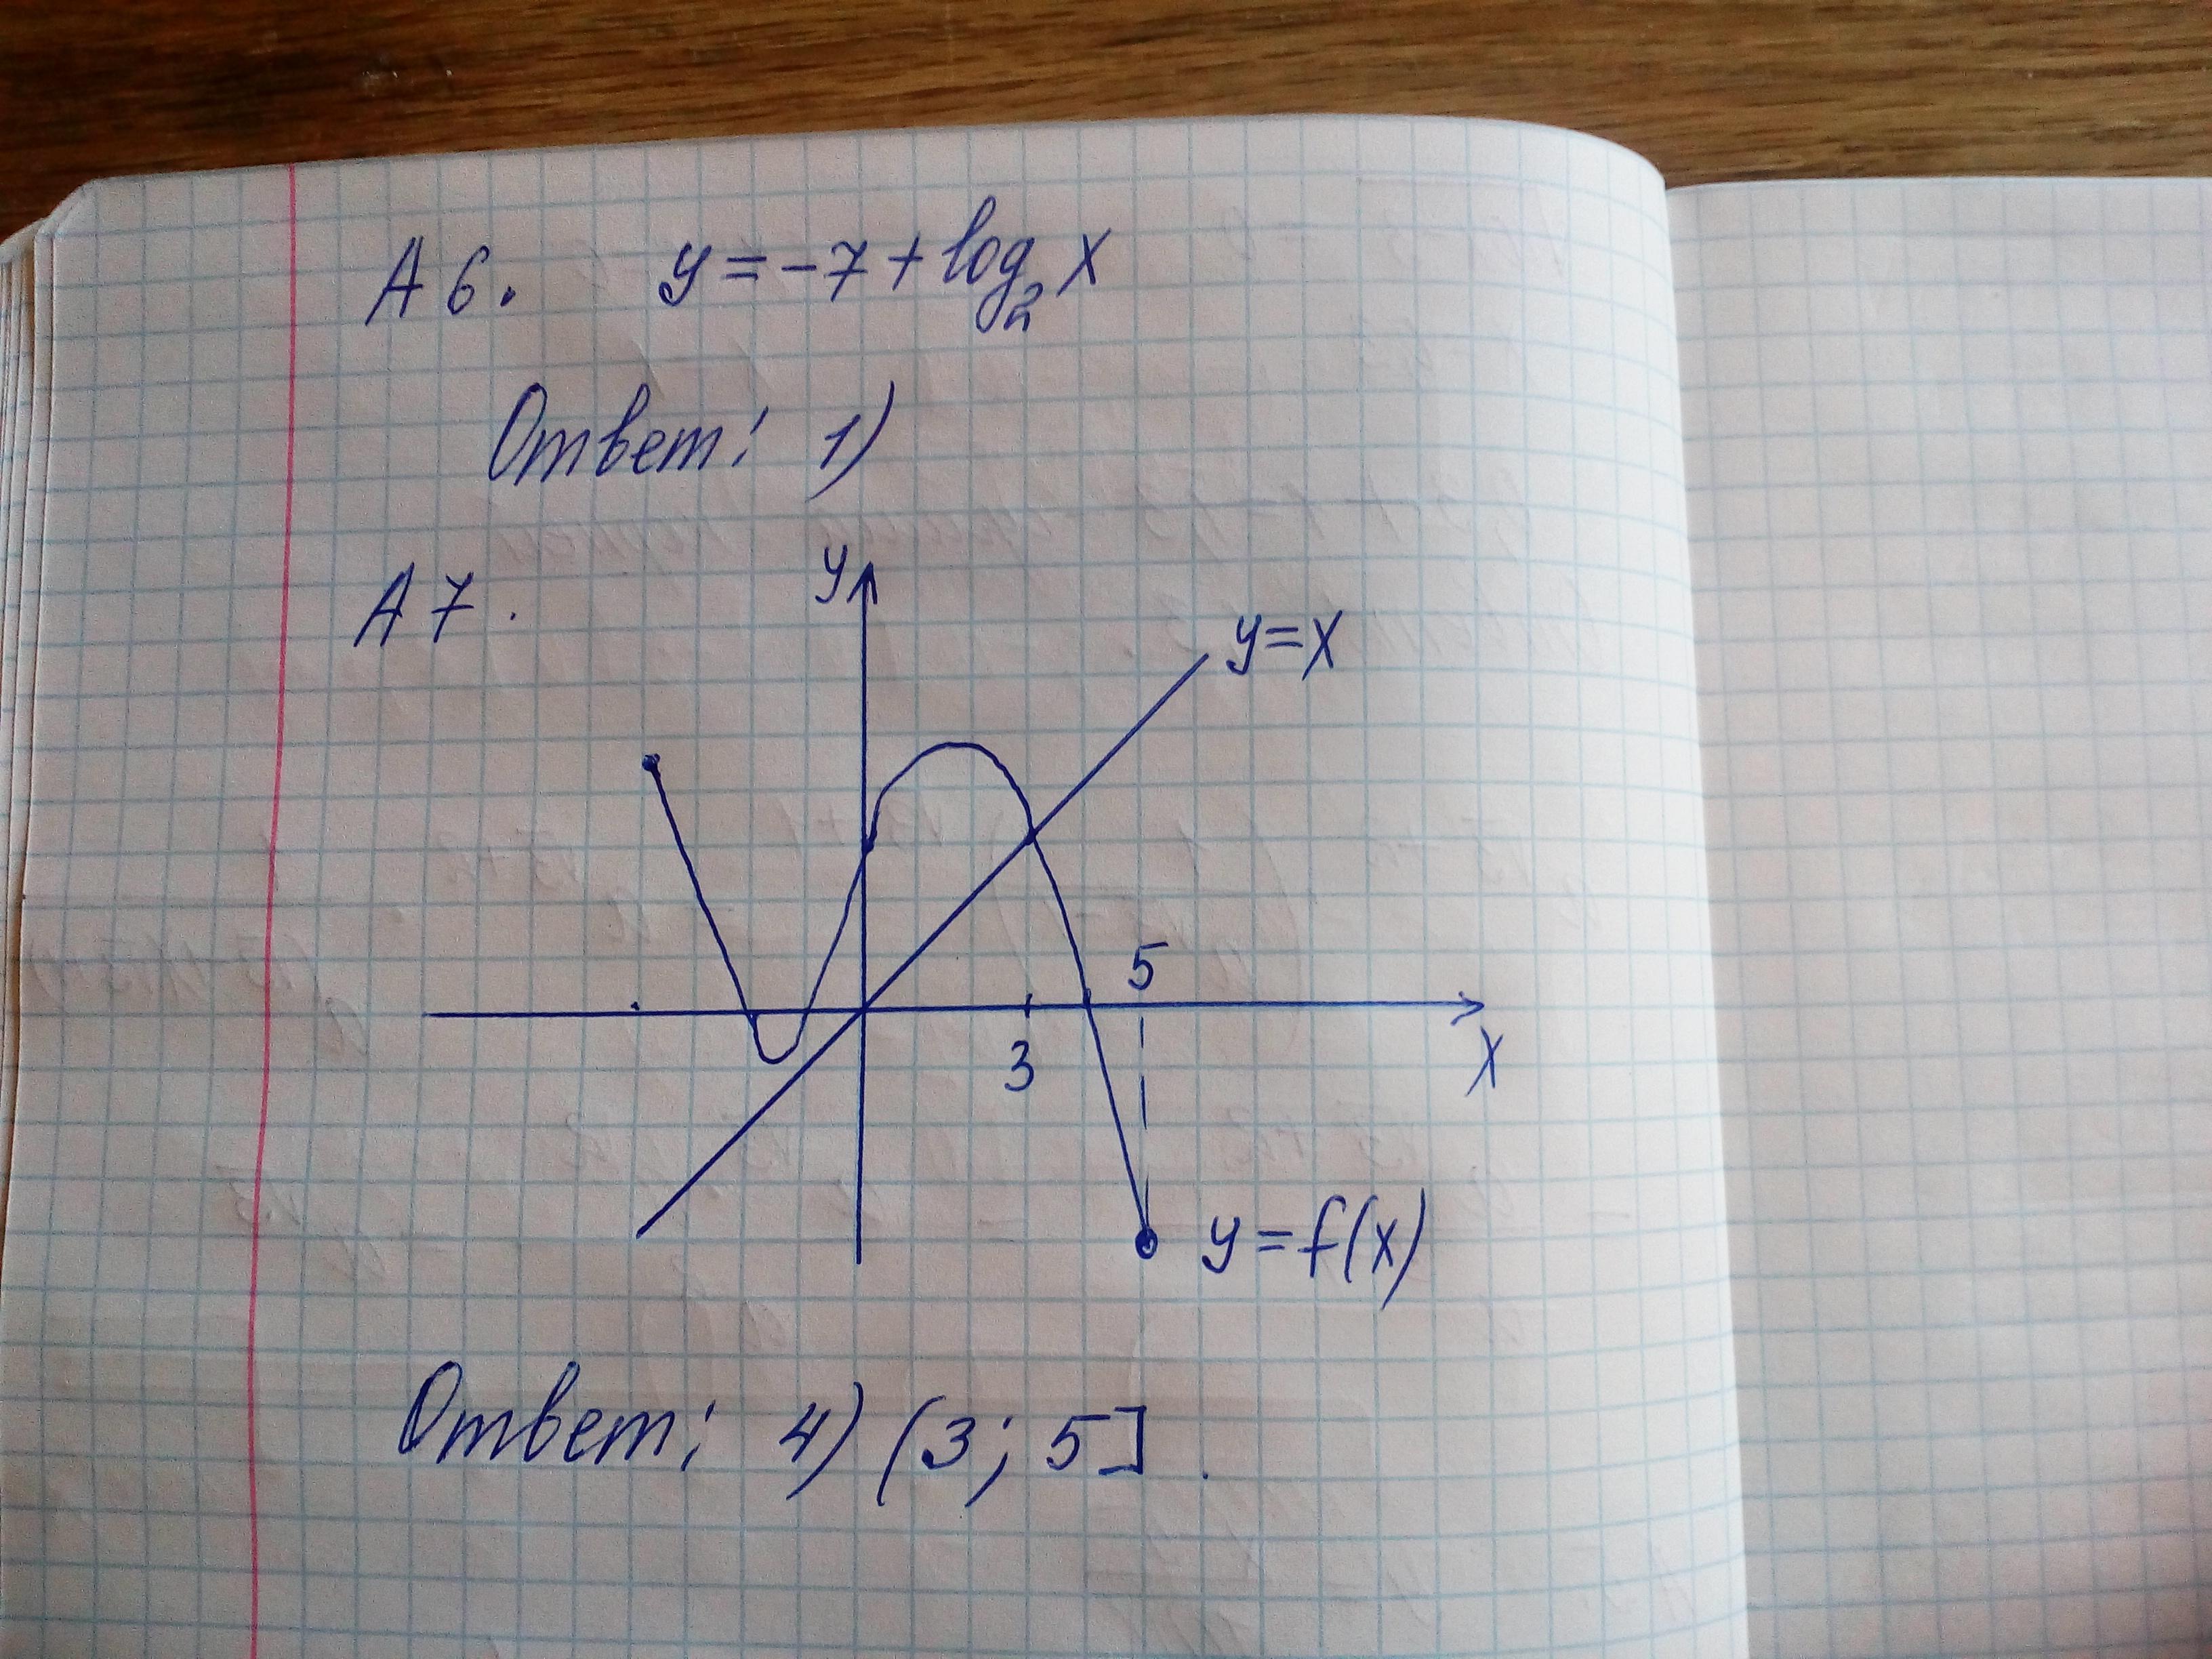 А 6. y = -7 + log₂ x
Ответ: 1)
А 7.
y
y=x
5
3
x
y = f(x)
Ответ: 4) (3; 5].